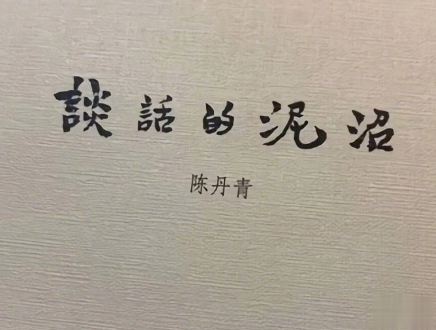 談話的泥沼
陈丹青